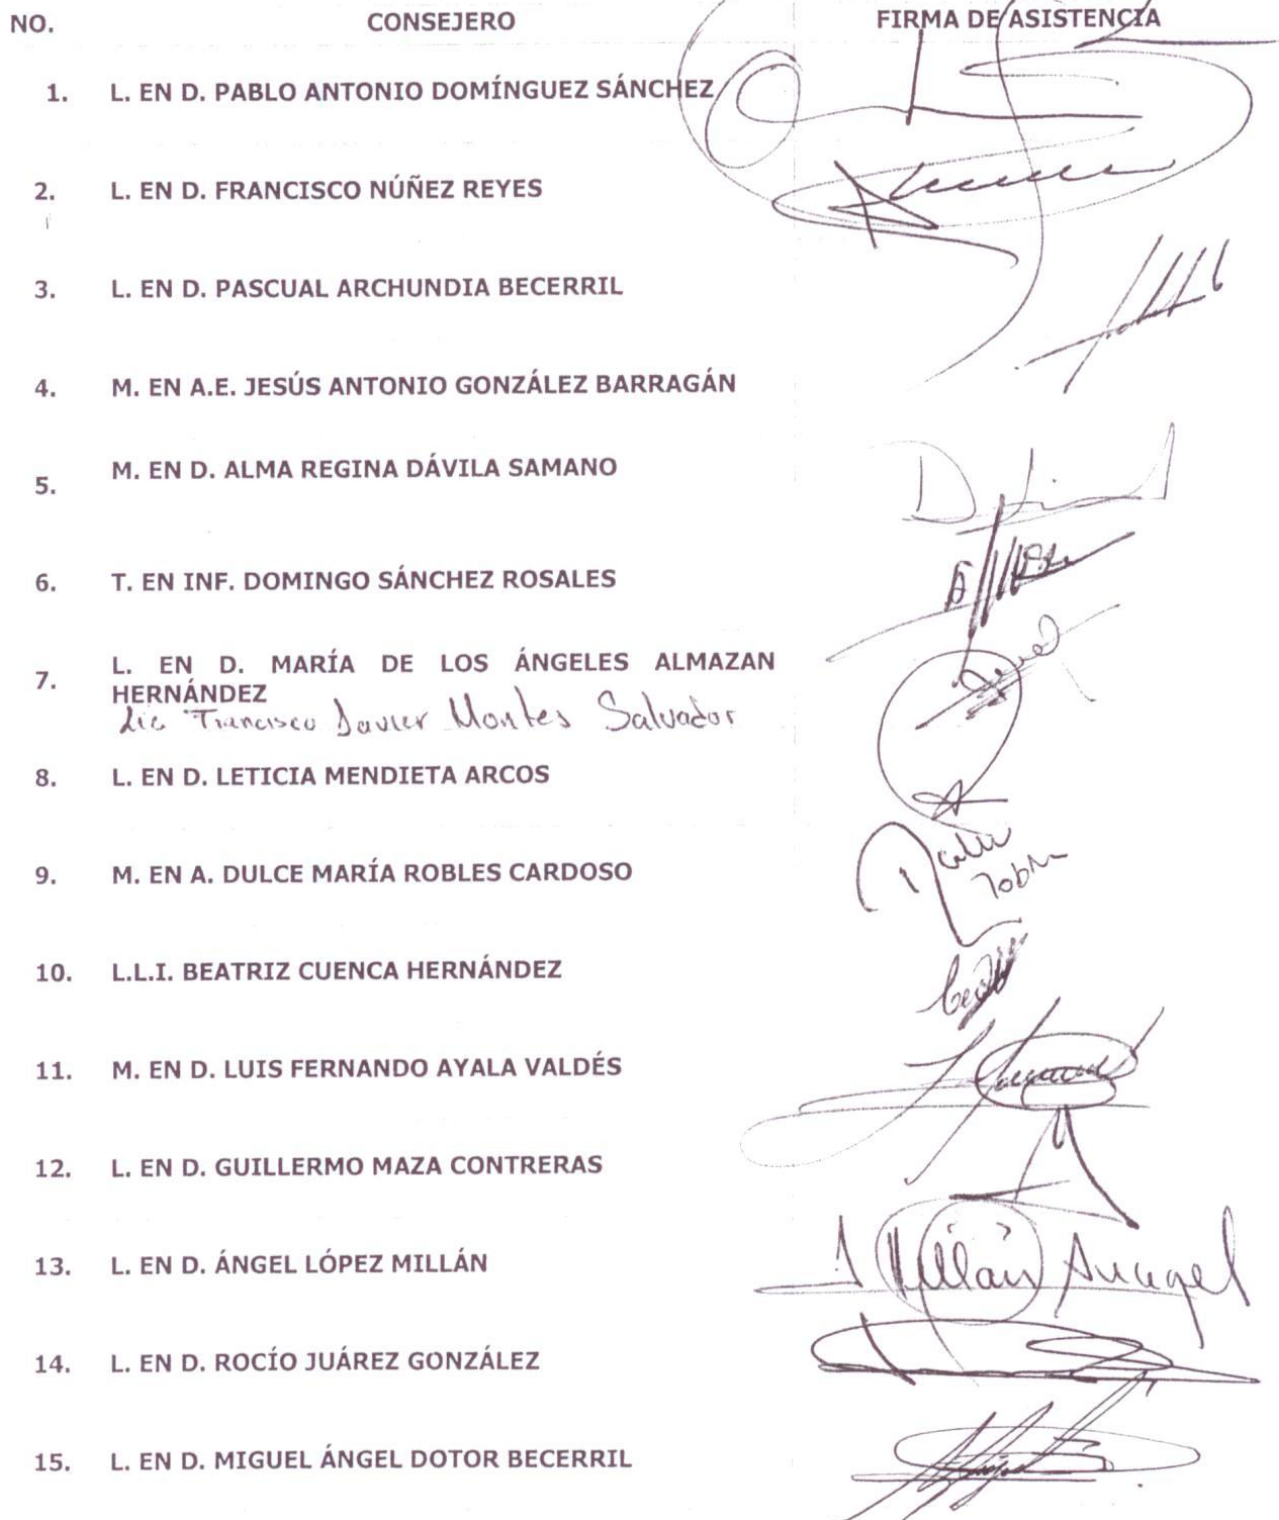 NO. CONSEJERO FIRMA DE ASISTENCIA
1. L. EN D. PABLO ANTONIO DOMÍNGUEZ SÁNCHEZ
2. L. EN D. FRANCISCO NÚÑEZ REYES
3. L. EN D. PASCUAL ARCHUNDIA BECERRIL
4. M. EN A.E. JESÚS ANTONIO GONZÁLEZ BARRAGÁN
5. M. EN D. ALMA REGINA DÁVILA SAMANO
6. T. EN INF. DOMINGO SÁNCHEZ ROSALES
7. L. EN D. MARÍA DE LOS ÁNGELES ALMAZAN
HERNÁNDEZ
Lic Francisco Javier Montes Salvador
8. L. EN D. LETICIA MENDIETA ARCOS
9. M. EN A. DULCE MARÍA ROBLES CARDOSO
10. L.L.I. BEATRIZ CUENCA HERNÁNDEZ
11. M. EN D. LUIS FERNANDO AYALA VALDÉS
12. L. EN D. GUILLERMO MAZA CONTRERAS
13. L. EN D. ÁNGEL LÓPEZ MILLÁN
14. L. EN D. ROCÍO JUÁREZ GONZÁLEZ
15. L. EN D. MIGUEL ÁNGEL DOTOR BECERRIL